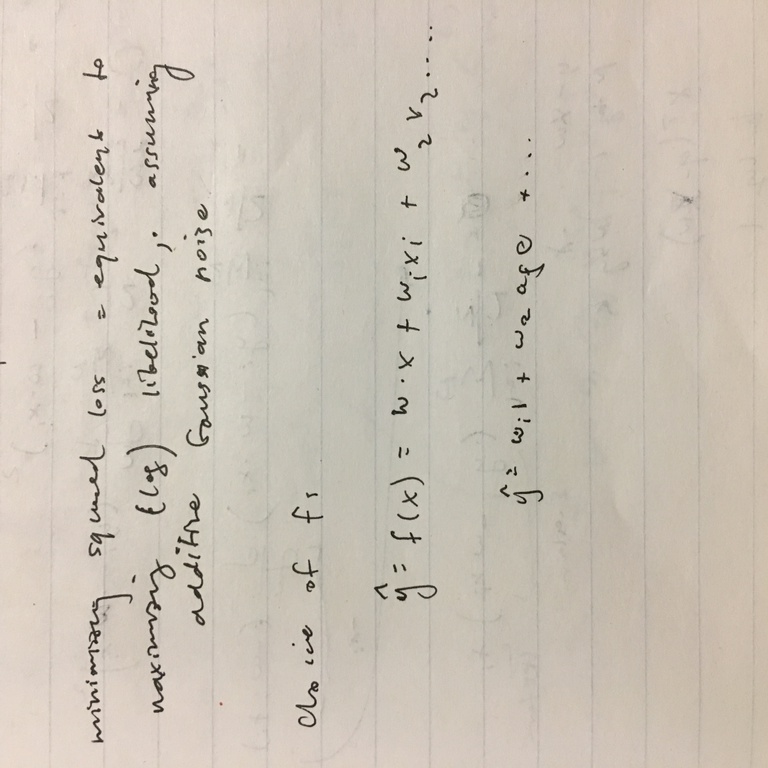 minimizing squared loss = equivalent to
maximizing (log) likelihood, assuming
additive Gaussian noise
choice of f:
ŷ = f(x) = w · x + w₁x₁ + w₂x₂ ....
ŷ = w₁1 + w₂ age + ...